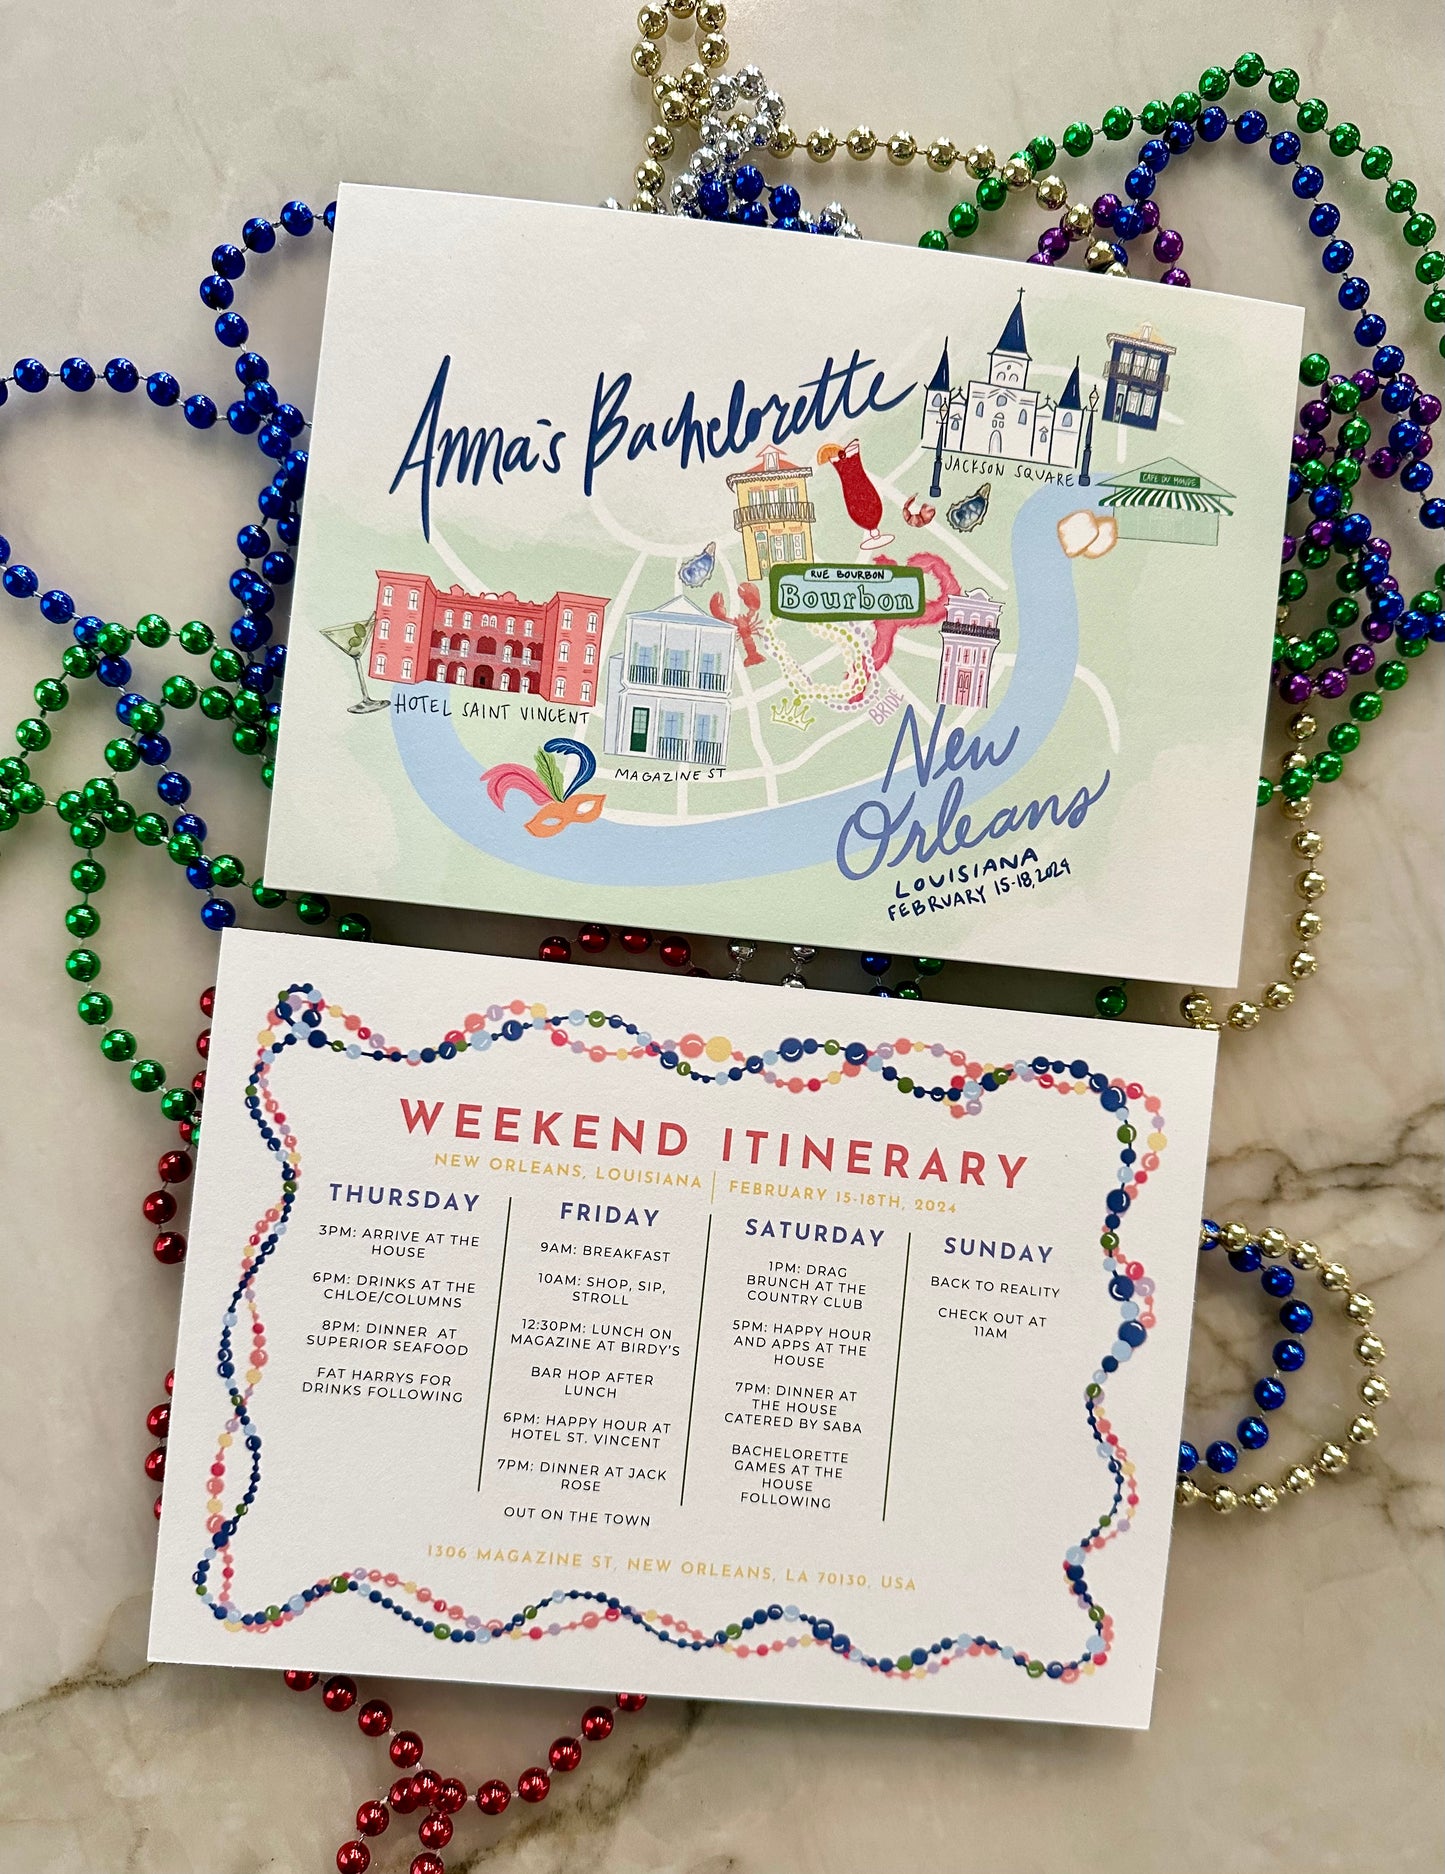 Anna's Bachelorette
JACKSON SQUARE
CAFE DU MONDE
RUE BOURBON
Bourbon
HOTEL SAINT VINCENT
BRIDE
MAGAZINE ST
New
Orleans
LOUISIANA
FEBRUARY 15-18, 2024
WEEKEND ITINERARY
NEW ORLEANS, LOUISIANA | FEBRUARY 15-18TH, 2024
THURSDAY
3PM: ARRIVE AT THE
HOUSE
6PM: DRINKS AT THE
CHLOE/COLUMNS
8PM: DINNER AT
SUPERIOR SEAFOOD
FAT HARRYS FOR
DRINKS FOLLOWING
FRIDAY
9AM: BREAKFAST
10AM: SHOP, SIP,
STROLL
12:30PM: LUNCH ON
MAGAZINE AT BIRDY'S
BAR HOP AFTER
LUNCH
6PM: HAPPY HOUR AT
HOTEL ST. VINCENT
7PM: DINNER AT JACK
ROSE
OUT ON THE TOWN
SATURDAY
1PM: DRAG
BRUNCH AT THE
COUNTRY CLUB
5PM: HAPPY HOUR
AND APPS AT THE
HOUSE
7PM: DINNER AT
THE HOUSE
CATERED BY SABA
BACHELORETTE
GAMES AT THE
HOUSE
FOLLOWING
SUNDAY
BACK TO REALITY
CHECK OUT AT
11AM
1306 MAGAZINE ST, NEW ORLEANS, LA 70130, USA